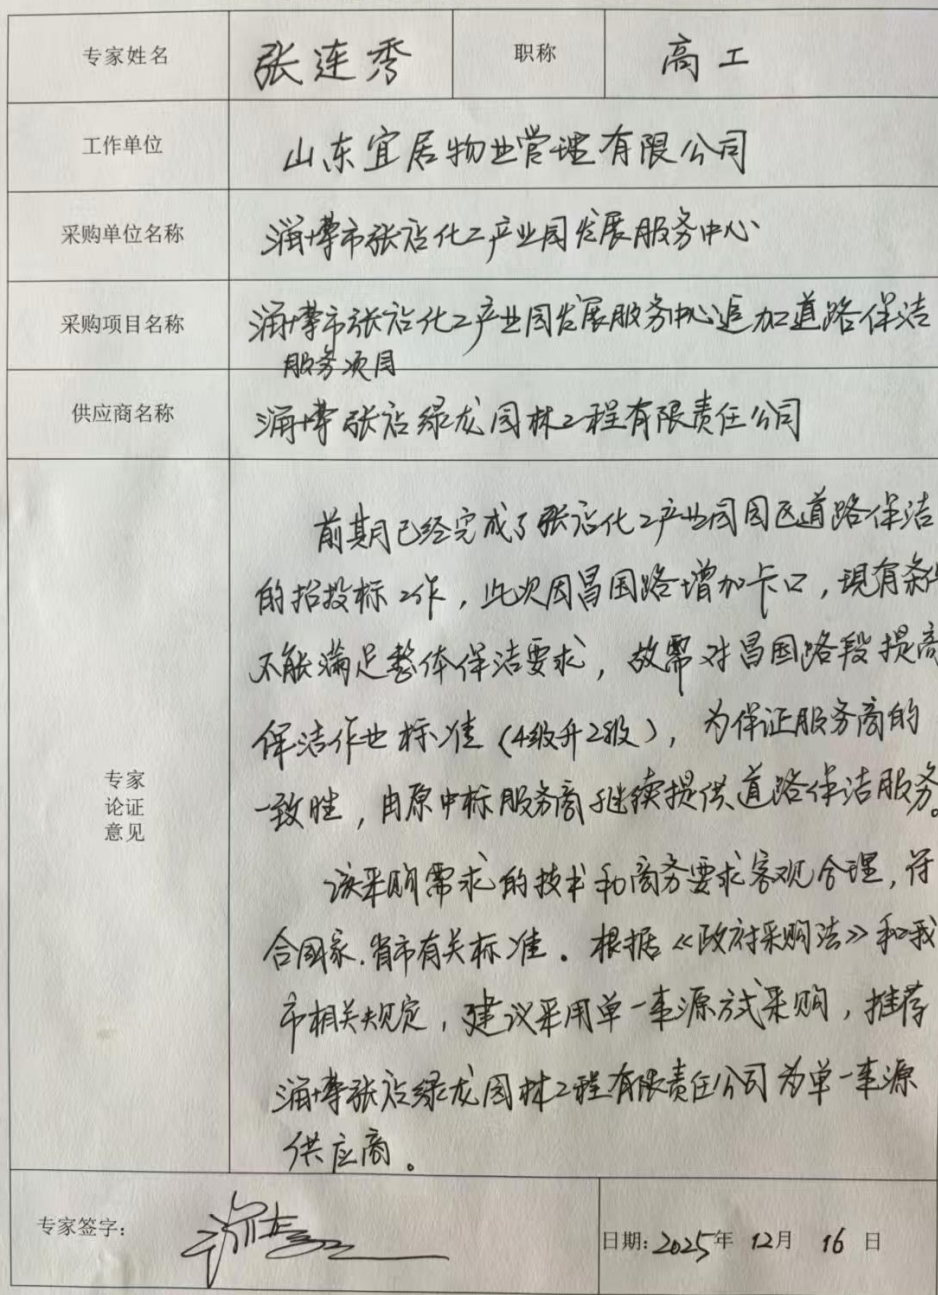 专家姓名 张连秀 职称 高工
工作单位 山东宜居物业管理有限公司
采购单位名称 淄博市张店化工产业园发展服务中心
采购项目名称 淄博市张店化工产业园发展服务中心追加道路保洁
服务项目
供应商名称 淄博张店绿龙园林工程有限责任公司
前期已经完成了张店化工产业园园区道路保洁
的招投标工作，此次因昌国路增加卡口，现有条件
不能满足整体保洁要求，故需对昌国路段提高
保洁作业标准（4级升2级），为保证服务商的
一致性，由原中标服务商继续提供道路保洁服务。
专家
论证
意见
该采购需求的技术和商务要求客观合理，符
合国家、省市有关标准。根据《政府采购法》和我
市相关规定，建议采用单一来源方式采购，推荐
淄博张店绿龙园林工程有限责任公司为单一来源
供应商。
专家签字： 日期：2025年 12月 16日